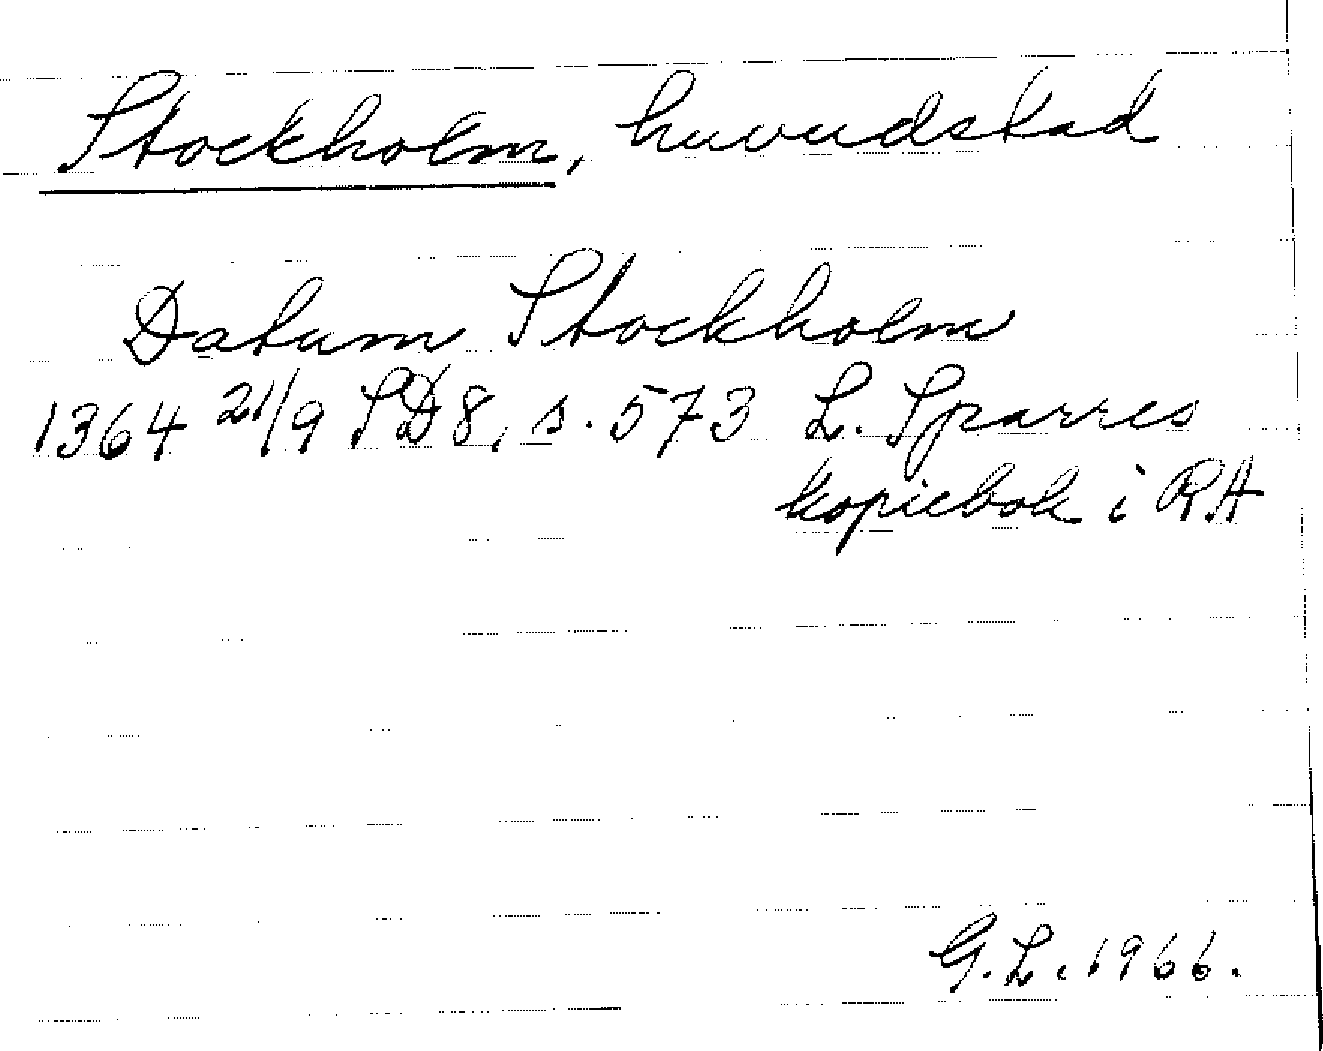 Stockholm, huvudstad
Datum Stockholm
1364 21/9 SD8, s. 573 L. Sparres
kopiebok i RA
G.L. 1966.